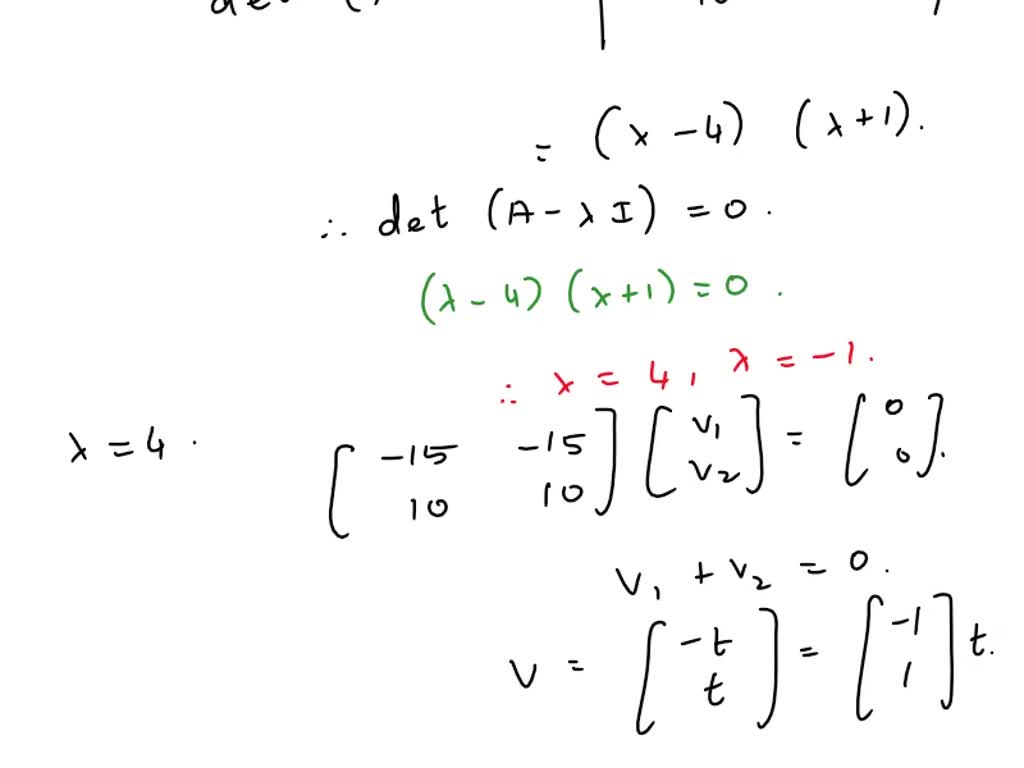 det (
= (λ - 4) (λ + 1).
∴ det (A - λ I) = 0.
(λ - 4) (λ + 1) = 0.
∴ λ = 4, λ = -1.
λ = 4. [ -15 -15 ] [ v1 ] = [ 0 ]
[ 10 10 ] [ v2 ] [ 0 ].
v1 + v2 = 0.
v = [ -t ] = [ -1 ] t.
[ t ] [ 1 ]